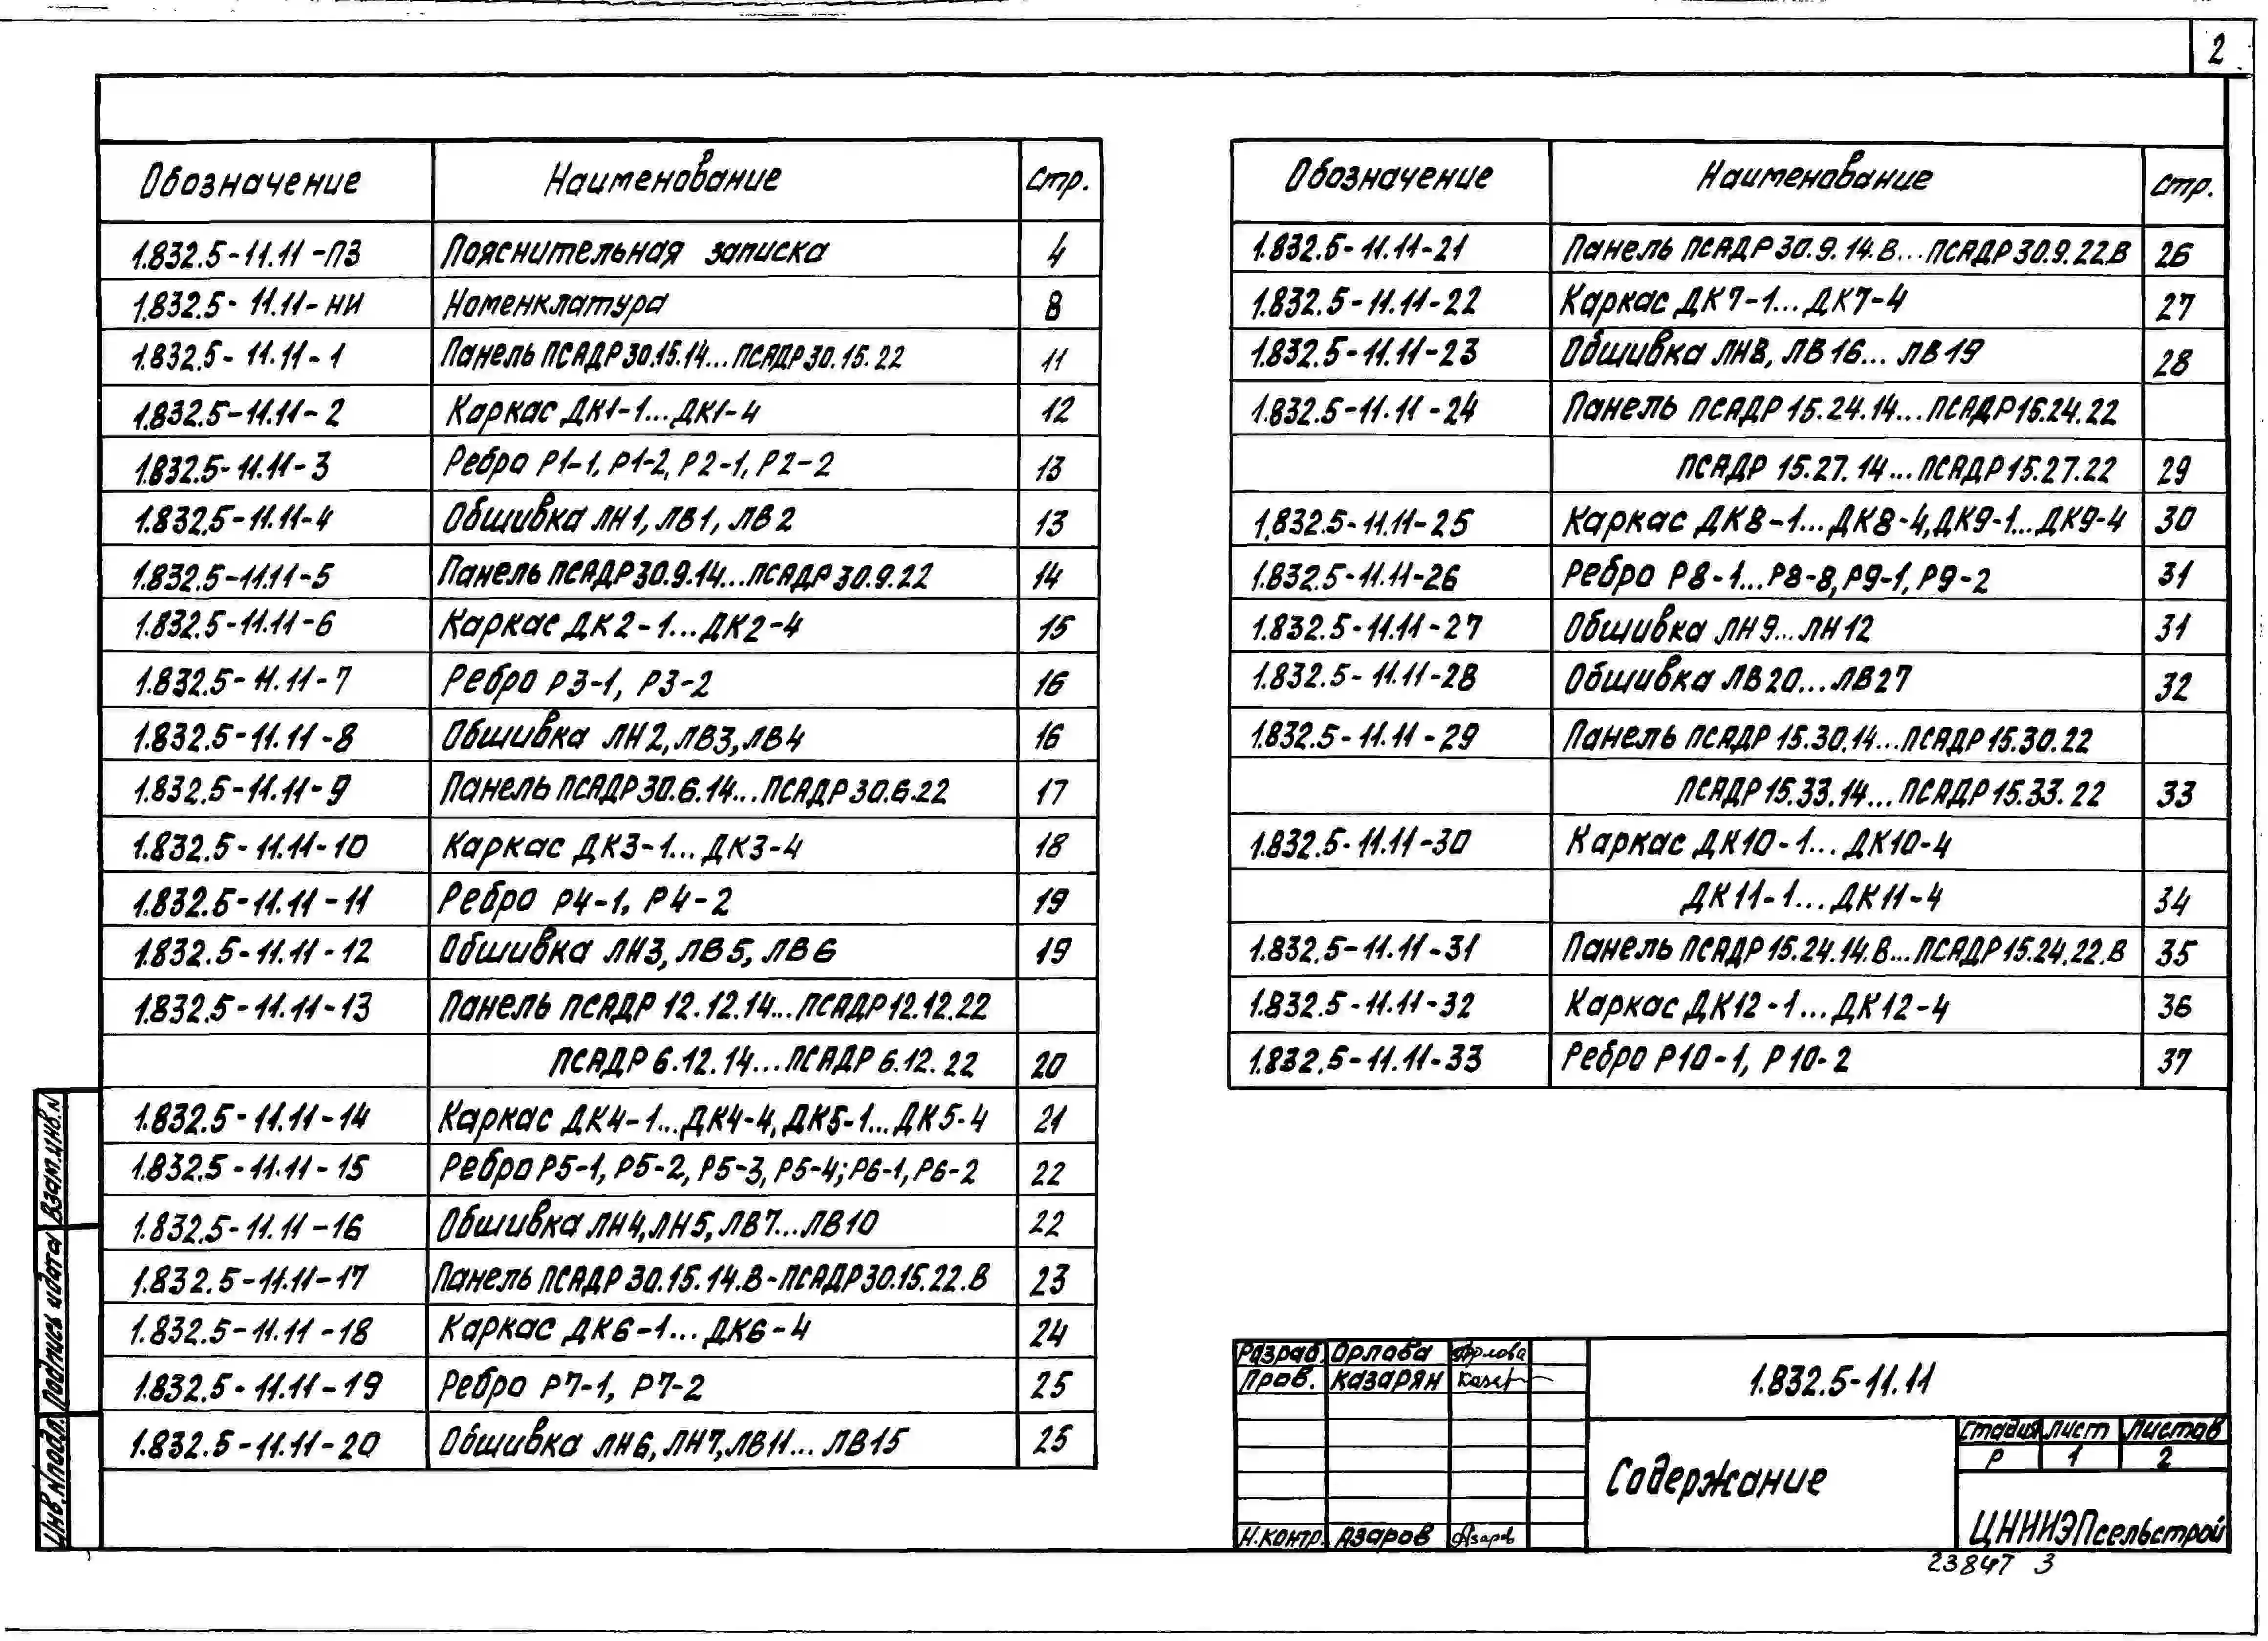 2
Обозначение Наименование Стр.
1.832.5-11.11-ПЗ Пояснительная записка 4
1.832.5-11.11-НИ Номенклатура 8
1.832.5-11.11-1 Панель ПСАДР30.15.14...ПСАДР30.15.22 11
1.832.5-11.11-2 Каркас ДК1-1...ДК1-4 12
1.832.5-11.11-3 Ребро Р1-1, Р1-2, Р2-1, Р2-2 13
1.832.5-11.11-4 Обшивка ЛН1, ЛВ1, ЛВ2 13
1.832.5-11.11-5 Панель ПСАДР30.9.14...ПСАДР30.9.22 14
1.832.5-11.11-6 Каркас ДК2-1...ДК2-4 15
1.832.5-11.11-7 Ребро Р3-1, Р3-2 16
1.832.5-11.11-8 Обшивка ЛН2, ЛВ3, ЛВ4 16
1.832.5-11.11-9 Панель ПСАДР30.6.14...ПСАДР30.6.22 17
1.832.5-11.11-10 Каркас ДК3-1...ДК3-4 18
1.832.5-11.11-11 Ребро Р4-1, Р4-2 19
1.832.5-11.11-12 Обшивка ЛН3, ЛВ5, ЛВ6 19
1.832.5-11.11-13 Панель ПСАДР 12.12.14...ПСАДР12.12.22
ПСАДР 6.12.14...ПСАДР 6.12.22 20
1.832.5-11.11-14 Каркас ДК4-1...ДК4-4, ДК5-1...ДК5-4 21
1.832.5-11.11-15 Ребро Р5-1, Р5-2, Р5-3, Р5-4; Р6-1, Р6-2 22
1.832.5-11.11-16 Обшивка ЛН4, ЛН5, ЛВ7...ЛВ10 22
1.832.5-11.11-17 Панель ПСАДР30.15.14.В-ПСАДР30.15.22.В 23
1.832.5-11.11-18 Каркас ДК6-1...ДК6-4 24
1.832.5-11.11-19 Ребро Р7-1, Р7-2 25
1.832.5-11.11-20 Обшивка ЛН6, ЛН7, ЛВ11...ЛВ15 25
Обозначение Наименование Стр.
1.832.5-11.11-21 Панель ПСАДР30.9.14.В...ПСАДР30.9.22.В 26
1.832.5-11.11-22 Каркас ДК7-1...ДК7-4 27
1.832.5-11.11-23 Обшивка ЛН8, ЛВ16...ЛВ19 28
1.832.5-11.11-24 Панель ПСАДР 15.24.14...ПСАДР15.24.22
ПСАДР 15.27.14...ПСАДР15.27.22 29
1.832.5-11.11-25 Каркас ДК8-1...ДК8-4, ДК9-1...ДК9-4 30
1.832.5-11.11-26 Ребро Р8-1...Р8-8, Р9-1, Р9-2 31
1.832.5-11.11-27 Обшивка ЛН9...ЛН12 31
1.832.5-11.11-28 Обшивка ЛВ20...ЛВ27 32
1.832.5-11.11-29 Панель ПСАДР 15.30.14...ПСАДР15.30.22
ПСАДР15.33.14...ПСАДР15.33.22 33
1.832.5-11.11-30 Каркас ДК10-1...ДК10-4
ДК11-1...ДК11-4 34
1.832.5-11.11-31 Панель ПСАДР15.24.14.В...ПСАДР15.24.22.В 35
1.832.5-11.11-32 Каркас ДК12-1...ДК12-4 36
1.832.5-11.11-33 Ребро Р10-1, Р10-2 37
Взам.инв.N
Подпись и дата
Инв.Nподл.
Разраб. Орлова Орлова
Пров. Казарян Казар
Н.контр. Азаров Азаров
1.832.5-11.11
Содержание
Стадия Лист Листов
Р 1 2
ЦНИИЭПсельстрой
23847 3